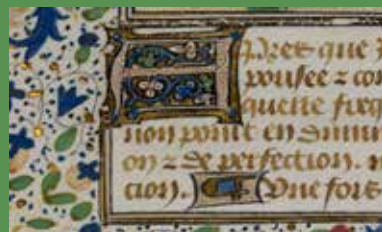 Apres que
pousee ⁊ con
quelle freq
non point en diminu
on ⁊ de perfection.
ction). Que fors